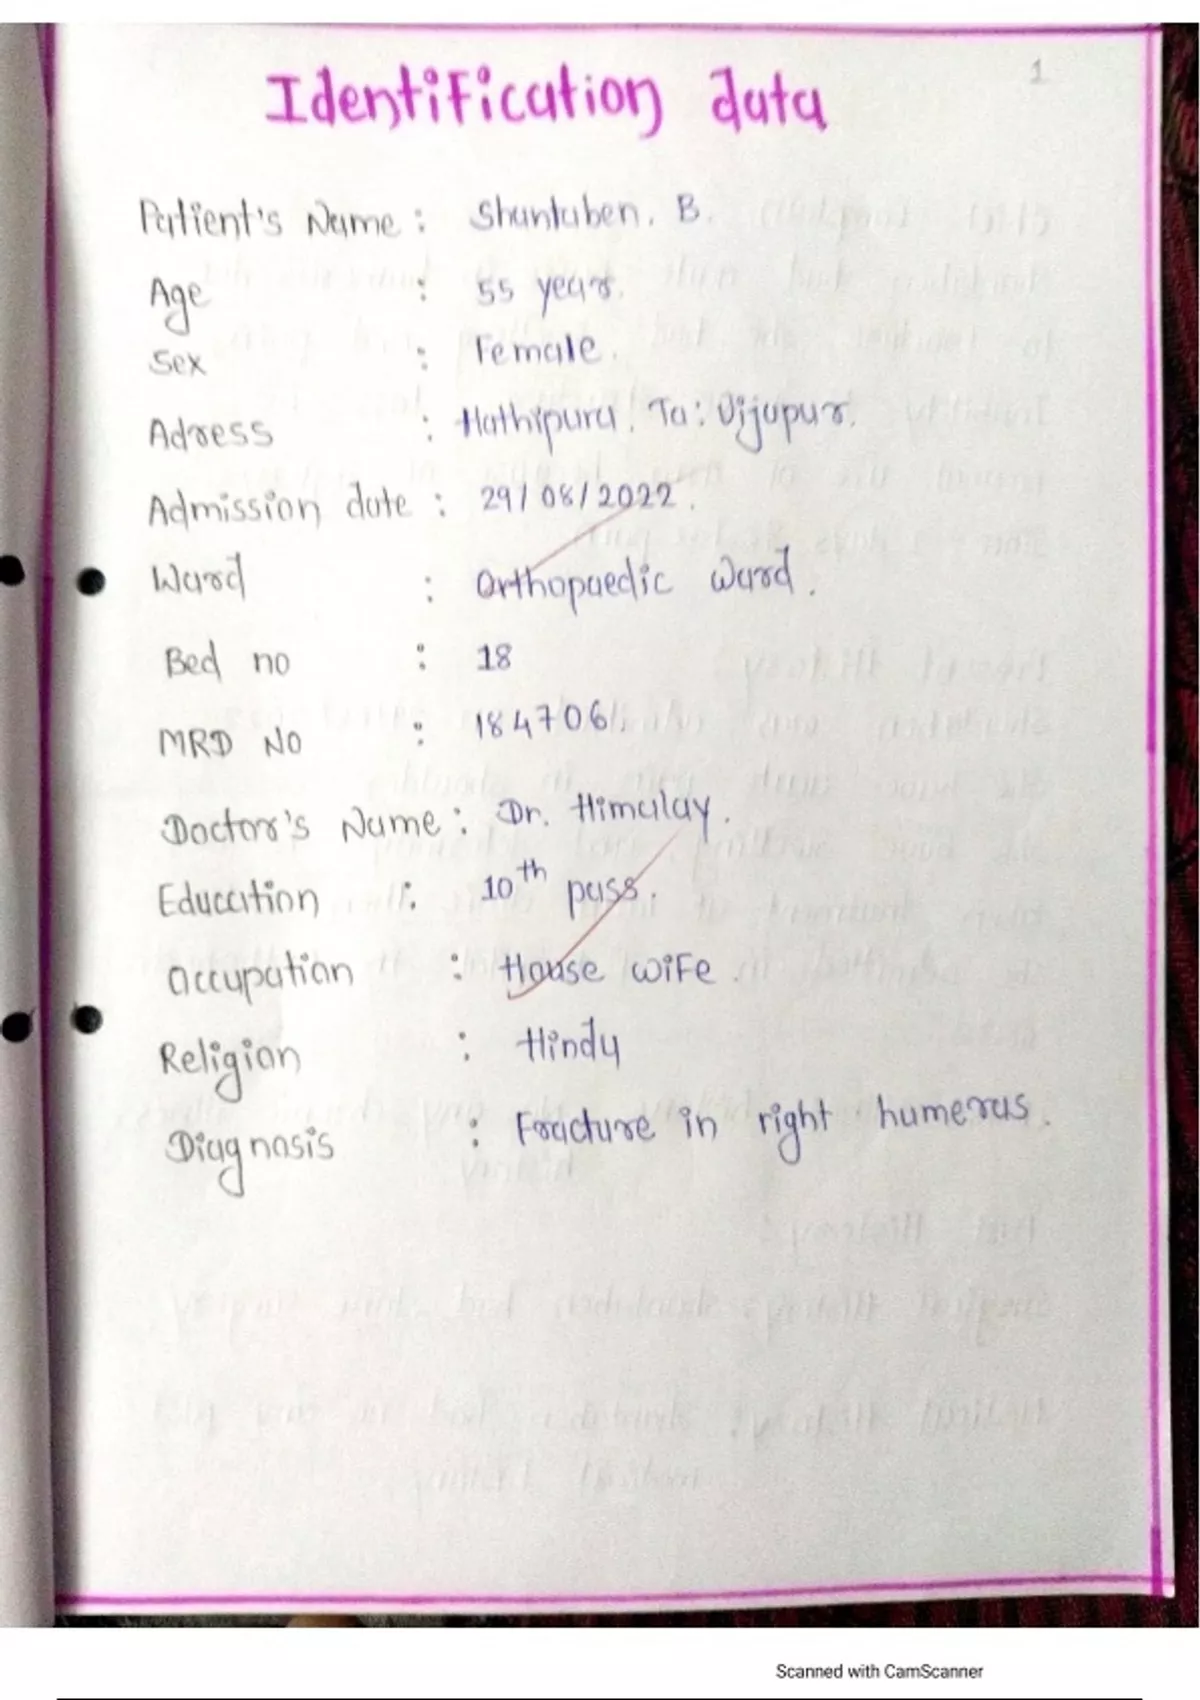 1
Identification data
Patient's Name : Shantaben. B.
Age : 55 years.
Sex : Female.
Adress : Hathipura. Ta: Vijapur.
Admission date : 29/08/2022.
Ward : Orthopaedic Ward.
Bed no : 18
MRD No : 184706.
Doctor's Name : Dr. Himalay.
Education : 10th pass.
Occupation : House wife.
Religion : Hindu
Diagnosis : Fracture in right humerus.
Scanned with CamScanner